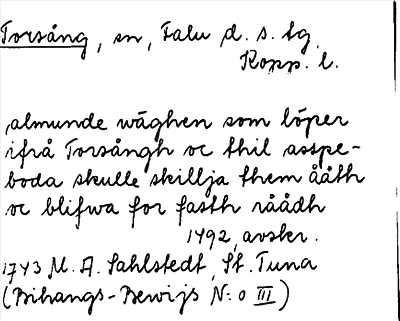 Torsång, sn, Falu d. s. tg.
Kopp. l.
almunde wäghen som löper
ifrå Torsångh oc thil asspe-
boda skulle skillja them ååth
oc blifwa for fasth råådh
1492, avskr.
1743 M. A. Sahlstedt, St. Tuna
(Bihangs-Bewijs N:o III)